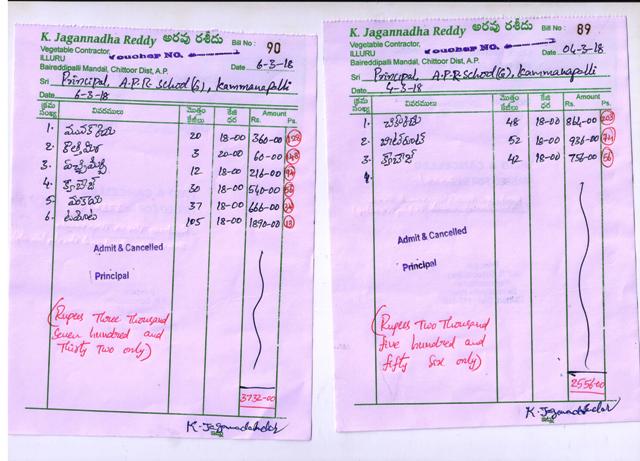 K. Jagannadha Reddy అరవు రశీదు
Bill No : 90
Vegetable Contractor,
VOUCHER NO.
ILLURU
Baireddipalli Mandal, Chittoor Dist, A.P.
Date 6-3-18
Sri Principal, A.P.R. School(G), Kammanapalli
Date 6-3-18
క్రమ సంఖ్య వివరములు మొత్తం కేజీలు కేజీ ధర Amount Rs. Ps.
1. 20 18-00 360-00
2. 3 20-00 60-00
3. 12 18-00 216-00
4. 30 18-00 540-00
5. వంకాయ 37 18-00 666-00
6. టమోటాలు 105 18-00 1890-00
Admit & Cancelled
Principal
(Rupees Three Thousand
Seven hundred and
Thirty Two only)
3732-00
K. Jagannadha
K. Jagannadha Reddy అరవు రశీదు
Bill No : 89
Vegetable Contractor,
VOUCHER NO.
ILLURU
Baireddipalli Mandal, Chittoor Dist, A.P.
Date 04-3-18
Sri Principal, A.P.R School(G), Kammanapalli
Date 4-3-18
క్రమ సంఖ్య వివరములు మొత్తం కేజీలు కేజీ ధర Amount Rs. Ps.
1. 48 18-00 864-00 203
2. 52 18-00 936-00 74
3. 42 18-00 756-00 56
4.
Admit & Cancelled
Principal
(Rupees Two Thousand
five hundred and
fifty Six only)
2556-00
K. Jagannadha